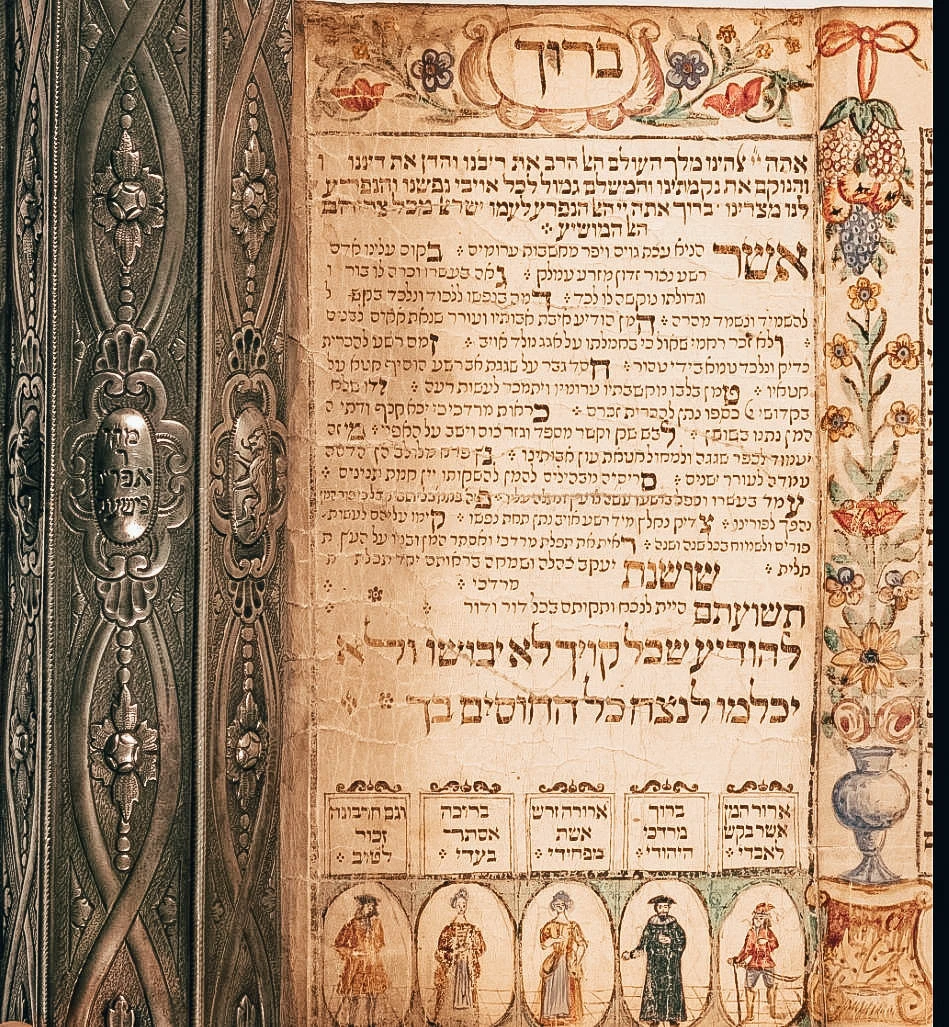 ברוך
אתה יי אלהינו מלך העולם האל הרב את ריבנו והדן את דיננו ו
והנוקם את נקמתינו והמשלם גמול לכל אויבי נפשנו והנפרע
לנו מצרינו ברוך אתה יי האל הנפרע לעמו ישראל מכל צריהם
האל המושיע
אשר הניא עצת גוים ויפר מחשבות ערומים בקום עלינו אדם
רשע נצר זדון מזרע עמלק גאה בעשרו וכרה לו בור ו
וגדולתו נוקשה לו לכד דמה בנפשו ללכוד ונלכד בקש ל
להשמיד ונשמד מהרה המן הודיע איבת אבותיו ועורר שנאת אחים לבנים
ולא זכר רחמי שאול כי בחמלתו על אגג נולד אויב זמם רשע להכרית
צדיק ונלכד טמא בידי טהור חסד גבר על שגגת אב רשע הוסיף חטא על
חטאיו טמן בלבו מחשבותיו ערומיו ויתמכר לעשות רעה ידו שלח
בקדושי כספו נתן להכרית זכרם כראות מרדכי כי יצא קצף ודתי ה
המן נתנו בשושן לבש שק וקשר מספד וגזר צום וישב על האפר מי זה
יעמוד לכפר שגגה ולמחול חטאת עון אבותינו נץ פרח מלולב הן הדסה
עמדה לעורר ישנים סריסיה מבהילים להמן להשקותו יין חמת תנינים
עמד בעשרו ונפל ברשעו עשה לו עץ ונתלה עליו
נהפך לפורינו צדיק נחלץ מיד רשע אויב נתן תחת נפשו קימו עליהם לעשות
פורים ולשמוח בכל שנה ושנה ראית את תפלת מרדכי ואסתר המן ובניו על העץ ת
תלית שושנת יעקב צהלה ושמחה בראותם יחד תכלת
מרדכי
תשועתם היית לנצח ותקותם בכל דור ודור
להודיע שכל קויך לא יבושו ולא
יכלמו לנצח כל החוסים בך
ארור המן
אשר בקש
לאבדי
ברוך
מרדכי
היהודי
ארורה זרש
אשת
מפחידי
ברוכה
אסתר
בעדי
וגם חרבונה
זכור
לטוב